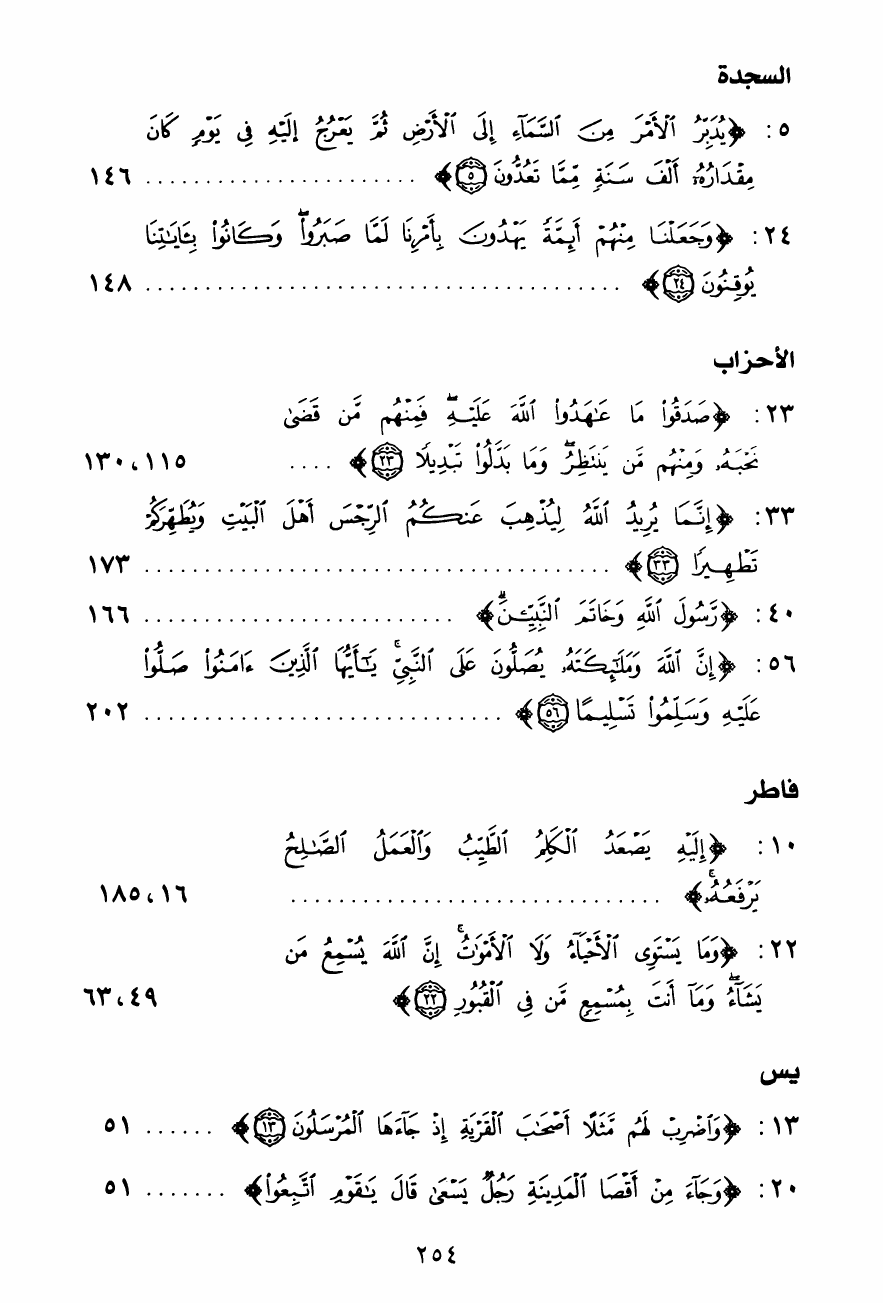 السجدة
٥ : ﴿يُدَبِّرُ ٱلۡأَمۡرَ مِنَ ٱلسَّمَآءِ إِلَى ٱلۡأَرۡضِ ثُمَّ يَعۡرُجُ إِلَيۡهِ فِي يَوۡمٖ كَانَ
مِقۡدَارُهُۥٓ أَلۡفَ سَنَةٖ مِّمَّا تَعُدُّونَ ٥﴾ ....................... ١٤٦
٢٤ : ﴿وَجَعَلۡنَا مِنۡهُمۡ أَئِمَّةٗ يَهۡدُونَ بِأَمۡرِنَا لَمَّا صَبَرُواْۖ وَكَانُواْ بِـَٔايَٰتِنَا
يُوقِنُونَ ٢٤﴾ ........................................ ١٤٨
الأحزاب
٢٣ : ﴿صَدَقُواْ مَا عَٰهَدُواْ ٱللَّهَ عَلَيۡهِۖ فَمِنۡهُم مَّن قَضَىٰ
نَحۡبَهُۥ وَمِنۡهُم مَّن يَنتَظِرُۖ وَمَا بَدَّلُواْ تَبۡدِيلٗا ٢٣﴾ .... ١١٥ ، ١٣٠
٣٣ : ﴿إِنَّمَا يُرِيدُ ٱللَّهُ لِيُذۡهِبَ عَنكُمُ ٱلرِّجۡسَ أَهۡلَ ٱلۡبَيۡتِ وَيُطَهِّرَكُمۡ
تَطۡهِيرٗا ٣٣﴾ ....................................... ١٧٣
٤٠ : ﴿رَّسُولَ ٱللَّهِ وَخَاتَمَ ٱلنَّبِيِّـۧنَۗ﴾ .......................... ١٦٦
٥٦ : ﴿إِنَّ ٱللَّهَ وَمَلَٰٓئِكَتَهُۥ يُصَلُّونَ عَلَى ٱلنَّبِيِّۚ يَٰٓأَيُّهَا ٱلَّذِينَ ءَامَنُواْ صَلُّواْ
عَلَيۡهِ وَسَلِّمُواْ تَسۡلِيمًا ٥٦﴾ .............................. ٢٠٢
فاطر
١٠ : ﴿إِلَيۡهِ يَصۡعَدُ ٱلۡكَلِمُ ٱلطَّيِّبُ وَٱلۡعَمَلُ ٱلصَّٰلِحُ
يَرۡفَعُهُۥۚ﴾ ............................... ١٦ ، ١٨٥
٢٢ : ﴿وَمَا يَسۡتَوِي ٱلۡأَحۡيَآءُ وَلَا ٱلۡأَمۡوَٰتُۚ إِنَّ ٱللَّهَ يُسۡمِعُ مَن
يَشَآءُۖ وَمَآ أَنتَ بِمُسۡمِعٖ مَّن فِي ٱلۡقُبُورِ ٢٢﴾ ٤٩ ، ٦٣
يس
١٣ : ﴿وَٱضۡرِبۡ لَهُم مَّثَلًا أَصۡحَٰبَ ٱلۡقَرۡيَةِ إِذۡ جَآءَهَا ٱلۡمُرۡسَلُونَ ١٣﴾ ...... ٥١
٢٠ : ﴿وَجَآءَ مِنۡ أَقۡصَا ٱلۡمَدِينَةِ رَجُلٞ يَسۡعَىٰ قَالَ يَٰقَوۡمِ ٱتَّبِعُواْ﴾ ....... ٥١
٢٥٤